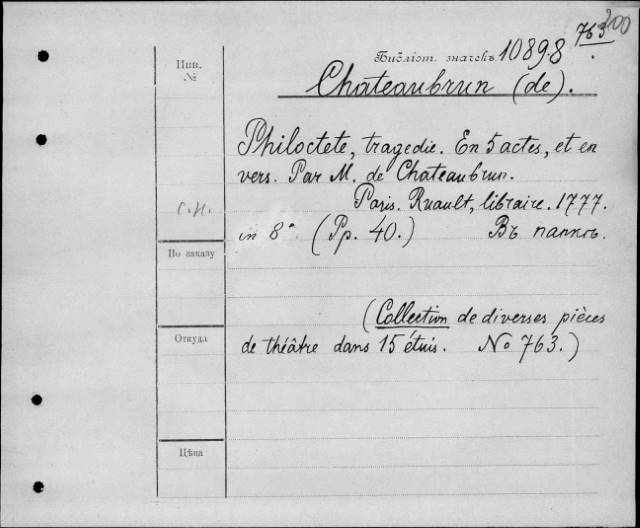 200
763
Инв.
№
Библіот. значекъ 10898.
Chateaubrun (de).
Philoctete, tragedie. En 5 actes, et en
vers. Par M. de Chateaubrun.
Paris. Ruault, libraire. 1777.
С.Н.
in 8° (Pp. 40.) Въ папкѣ.
По заказу
(Collection de diverses pièces
Откуда
de théâtre dans 15 étuis. No 763.)
Цѣна